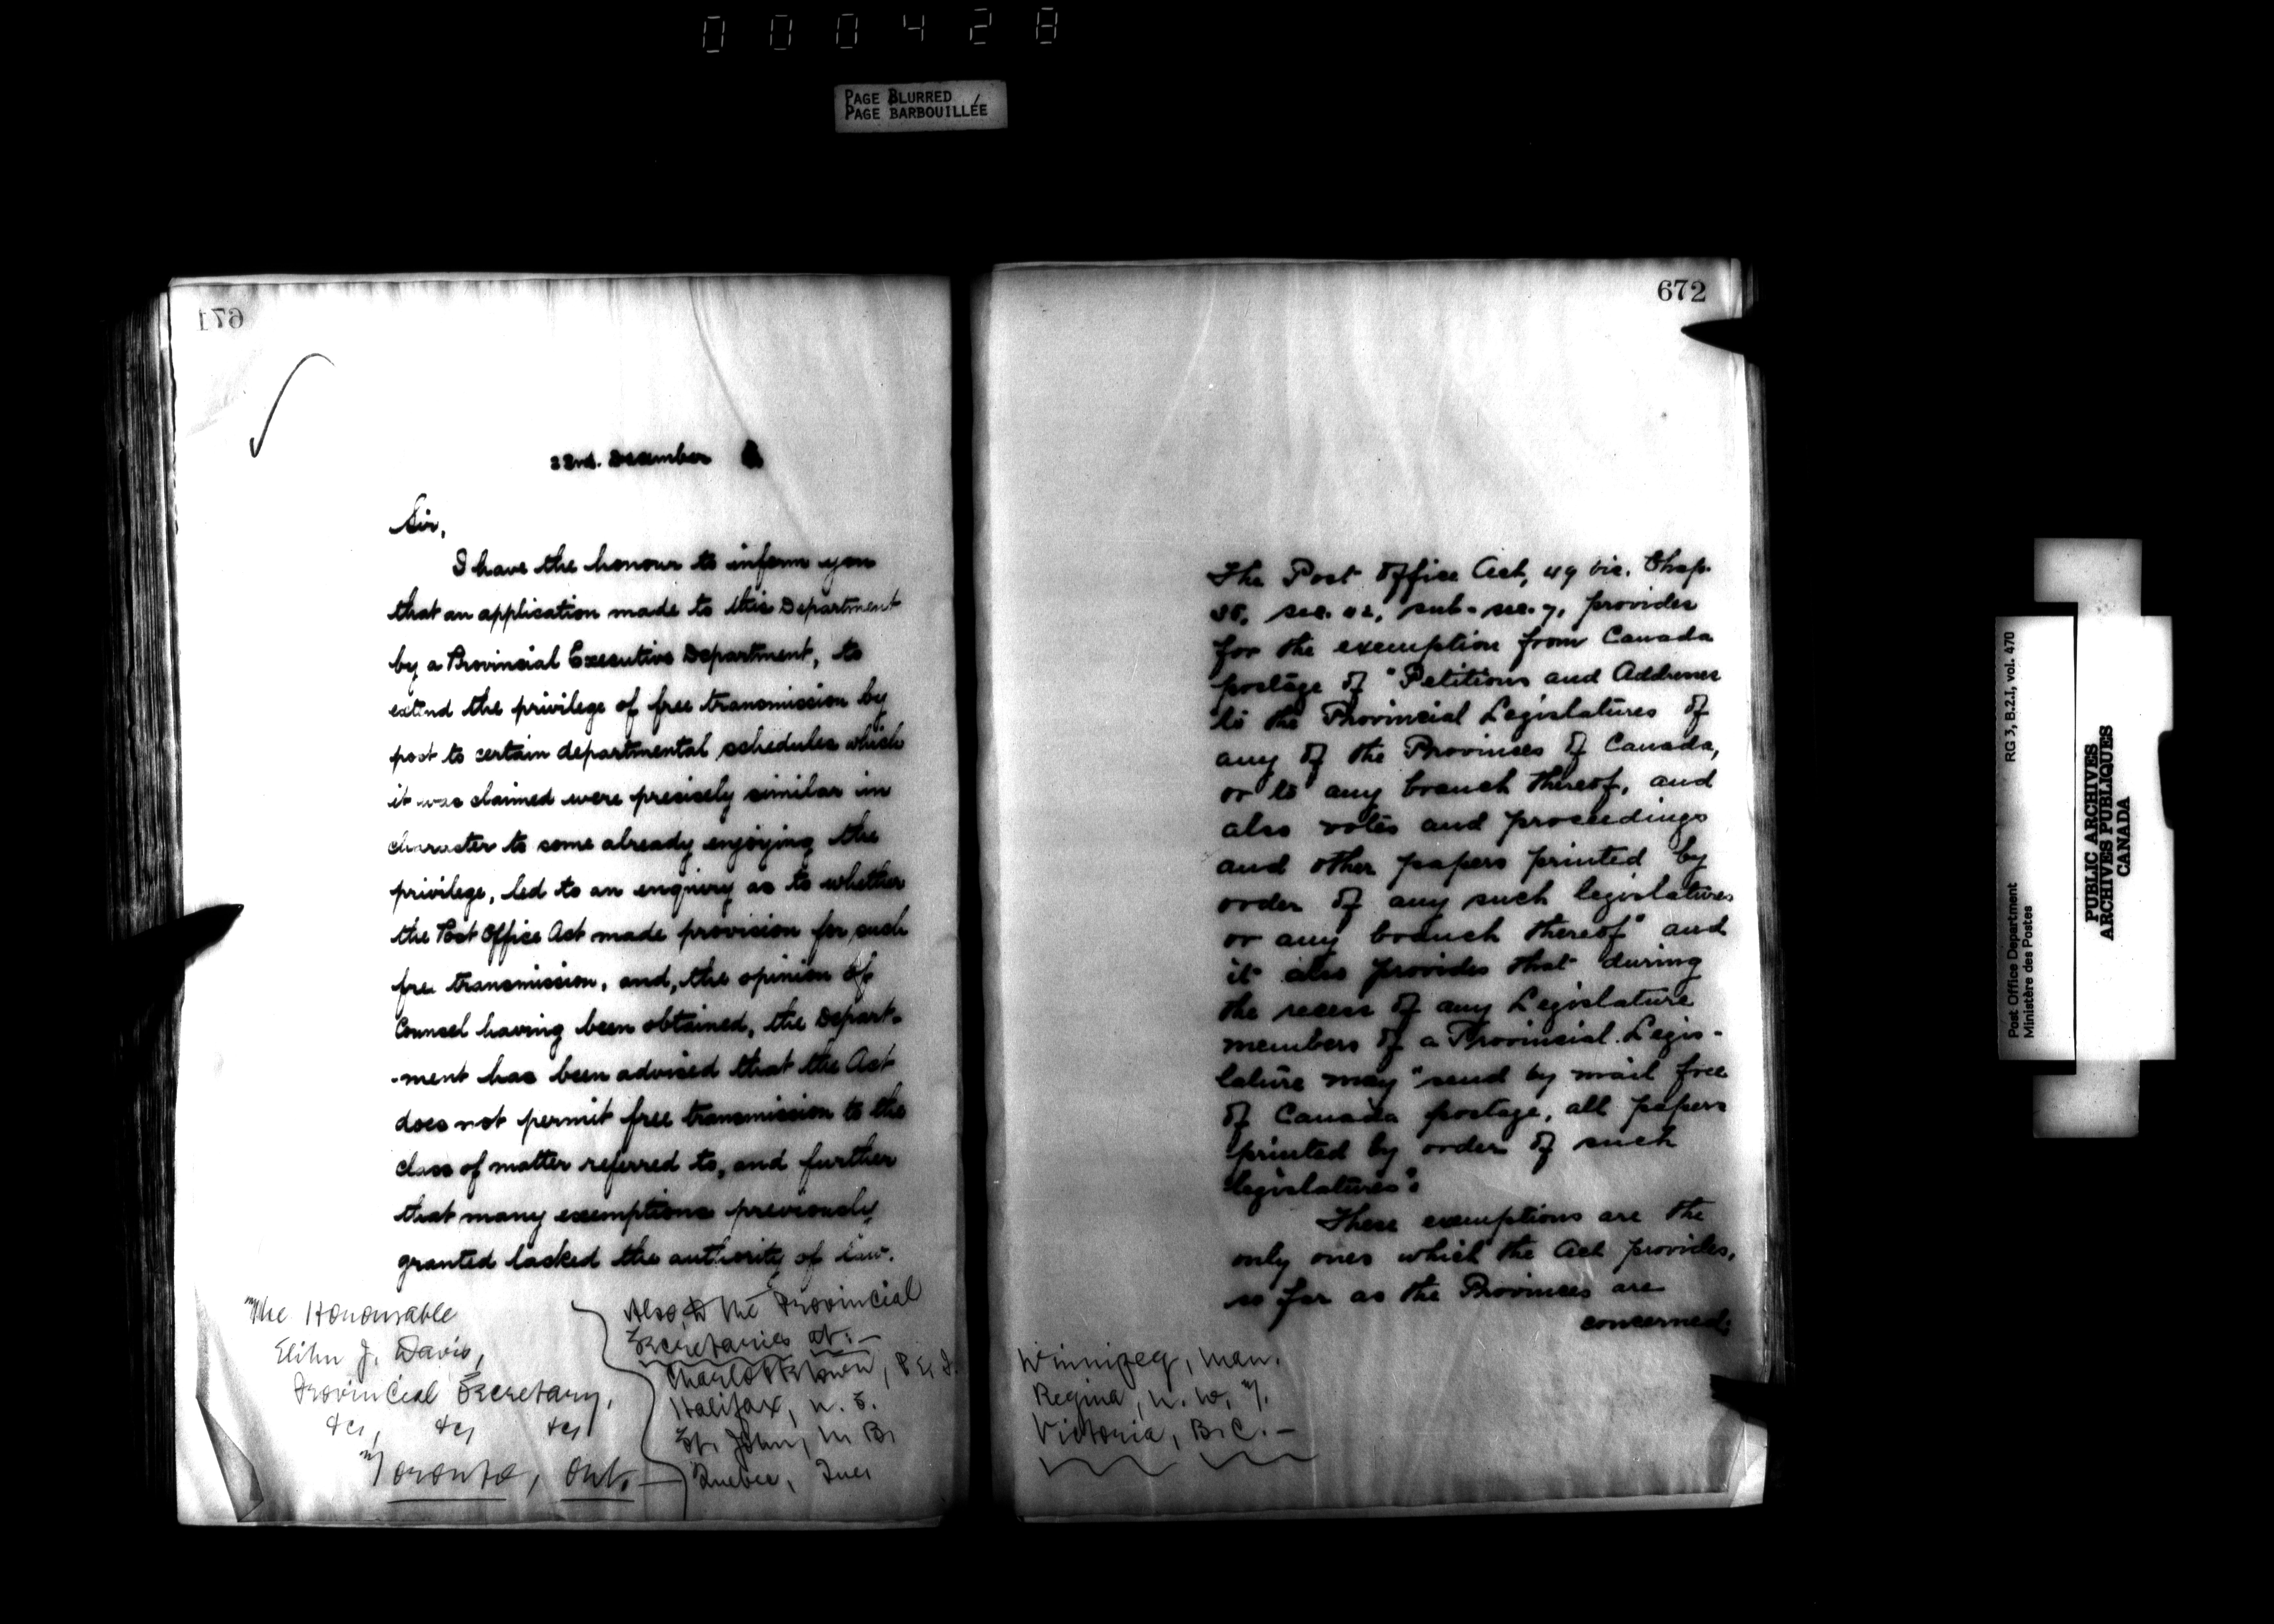 000428
PAGE BLURRED
PAGE BARBOUILLÉE
671
22nd. December
Sir,
I have the honour to inform you
that an application made to this Department
by a Provincial Executive Department, to
extend the privilege of free transmission by
post to certain departmental schedules which
it was claimed were precisely similar in
character to some already enjoying the
privilege, led to an enquiry as to whether
the Post Office Act made provision for such
free transmission, and, the opinion of
Counsel having been obtained, the Depart-
-ment has been advised that the Act
does not permit free transmission to the
class of matter referred to, and further
that many exemptions previously
granted lacked the authority of law.
The Honourable
Elihu J. Davis,
Provincial Secretary,
&c, &c, &c,
Toronto, Ont.
Also to the Provincial
Secretaries at:—
Charlottetown, P.E.I.
Halifax, N.S.
St. John, N.B.
Quebec, Que.
672
The Post Office Act, 49 Vic. Chap.
sec. sub-sec. 7, provides
for the exemption from Canada
postage of "Petitions and Addresses
to the Provincial Legislatures of
any of the Provinces of Canada,
or to any branch thereof, and
also votes and proceedings
and other papers printed by
order of any such legislatures
or any branch thereof" and
it also provides that during
the recess of any Legislature
members of a Provincial Legis-
lature may "send by mail free
of Canada postage, all papers
printed by order of such
legislatures".
These exemptions are the
only ones which the Act provides,
so far as the Provinces are
concerned.
Winnipeg, Man.
Regina, N.W.T.
Victoria, B.C.—
Post Office Department RG 3, B.2.I, vol. 470
Ministère des Postes
PUBLIC ARCHIVES
ARCHIVES PUBLIQUES
CANADA